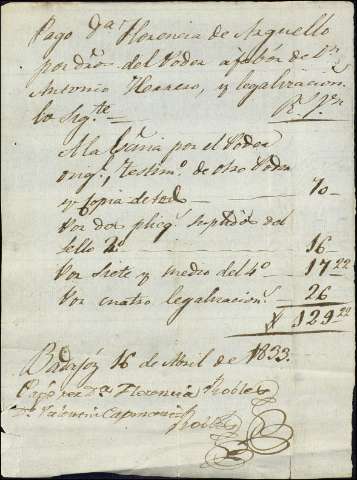 Pago Dª Florencia de Arguello
por dros. del Poder a favor de Dn.
Antonio Herrero, y legalizacion
lo sigte. =
Rs. Vn.
A la por el Poder
orig.l, testimo. de otro Poder
y copia de 70
Por dos plieg.s del
sello 2º 16
Por siete y medio del 4º 17 22
Por cuatro legalizacion.s 26
129 22
Badajóz 16 de Abril de 1833.
Pagó por Dª Florencia Robles
Dª Valencia
Robles